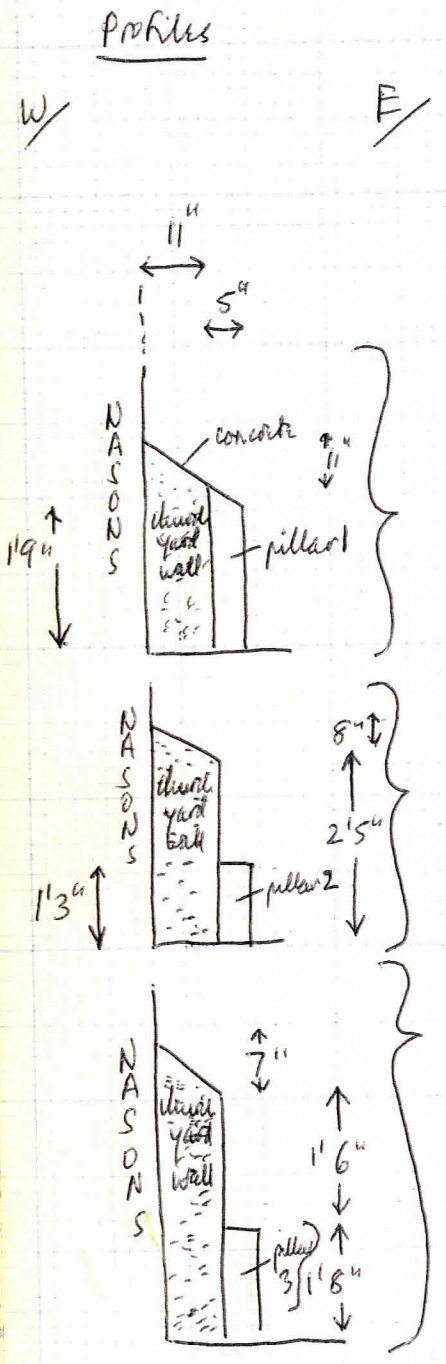 Profiles
W/ E/
11"
5"
NASONS
concrete
11"
church
yard
wall
pillar 1
1'9"
NASONS
8"
church
yard
wall
2'5"
1'3"
pillar 2
NASONS
7"
church
yard
wall
1'6"
pillar
3
1'8"